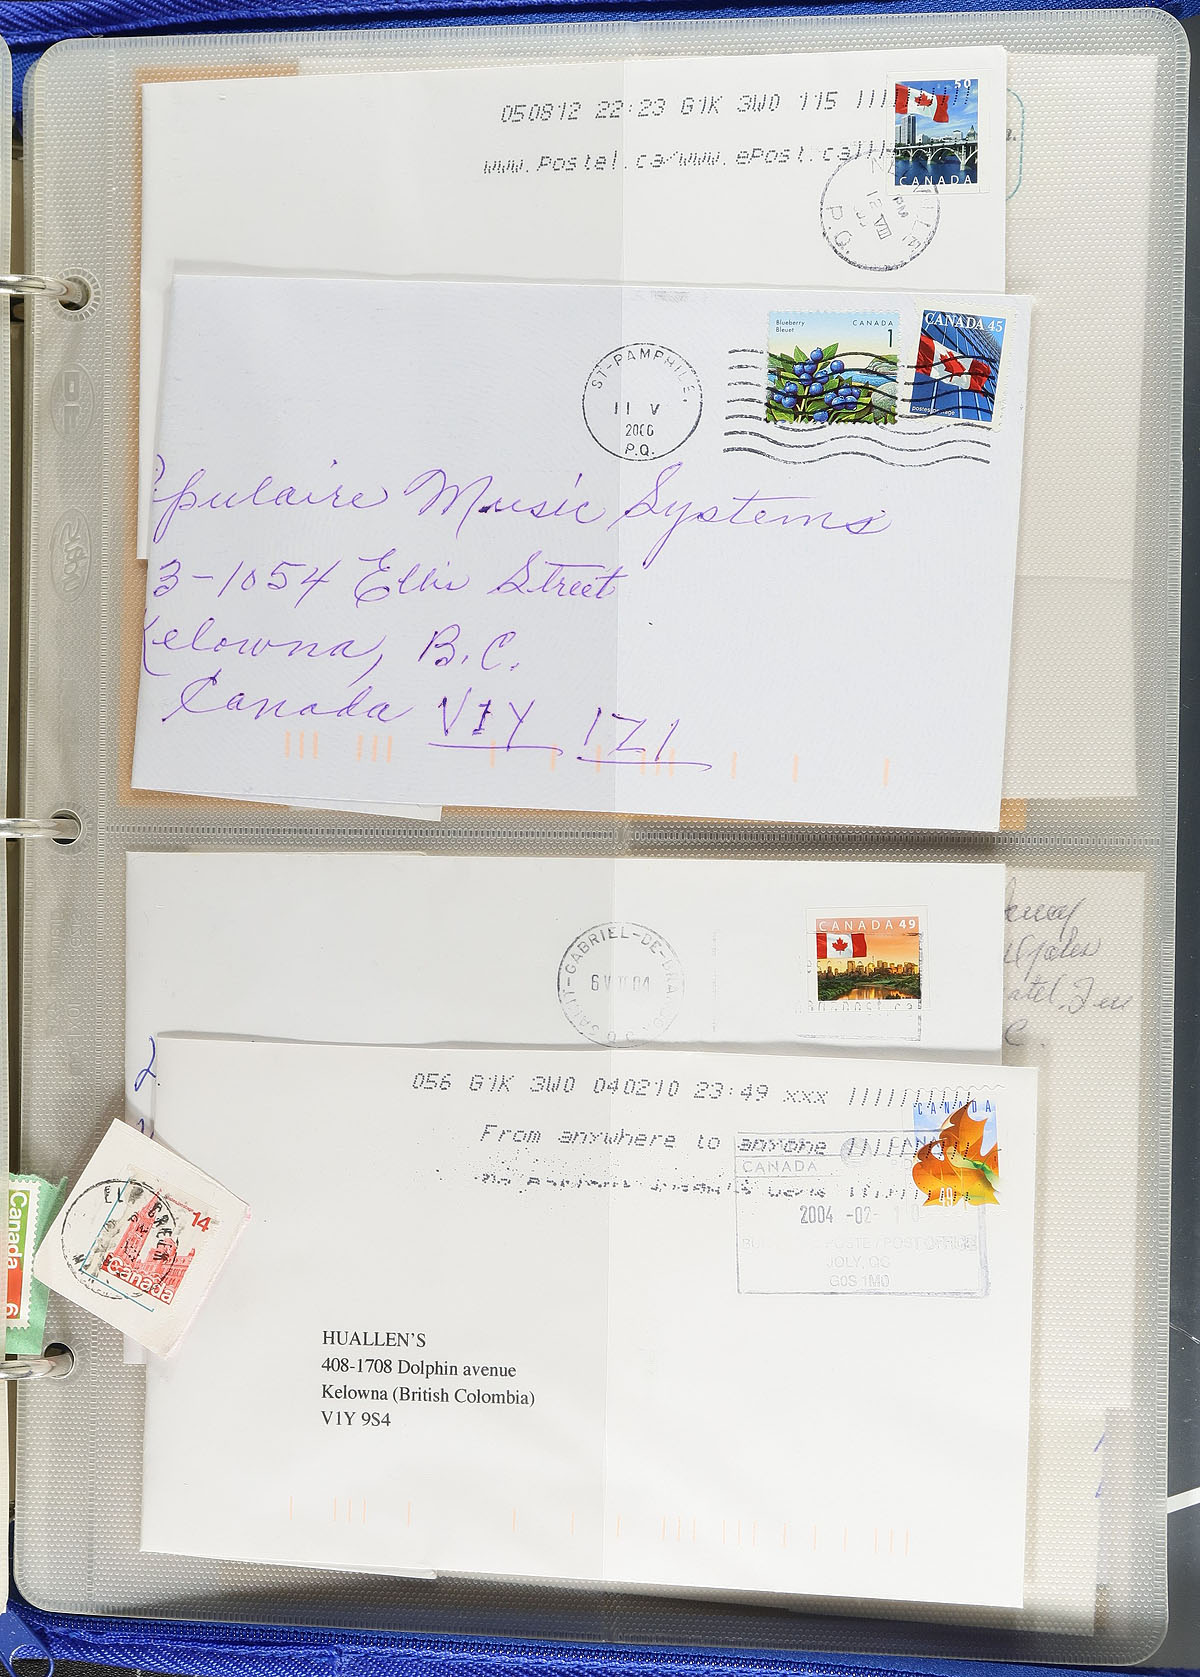 050812 22:23 G1K 3W0 115
www.Postel.ca/www.ePost.ca
50
CANADA
P.Q.
PM
Blueberry
Bleuet
CANADA
1
CANADA 45
postes postage
ST-PAMPHILE,
11 V
2000
P.Q.
pulaire Music Systems
3-1054 Ellis Street
Kelowna, B.C.
Canada V1Y 1Z1
CANADA 49
SAINT-GABRIEL-DE-BRA
056 G1K 3W0 040210 23:49 xxx
From anywhere to anyone
CANADA
CANADA
2004 -02-
POST OFFICE
JOLY, QC
G0S 1M0
49
14
Canada
Canada
6
HUALLEN'S
408-1708 Dolphin avenue
Kelowna (British Colombia)
V1Y 9S4